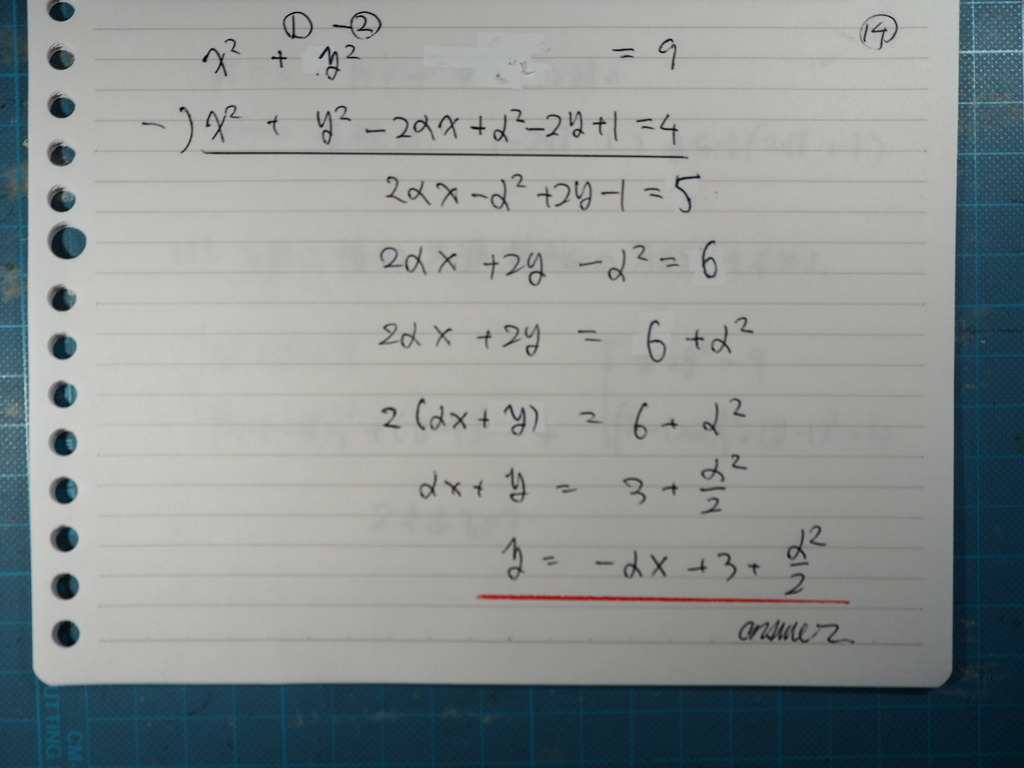 ① - ②
⑭
x² + y² = 9
-) x² + y² - 2αx + α² - 2y + 1 = 4
2αx - α² + 2y - 1 = 5
2αx + 2y - α² = 6
2αx + 2y = 6 + α²
2(αx + y) = 6 + α²
αx + y = 3 + α²/2
y = -αx + 3 + α²/2
answer